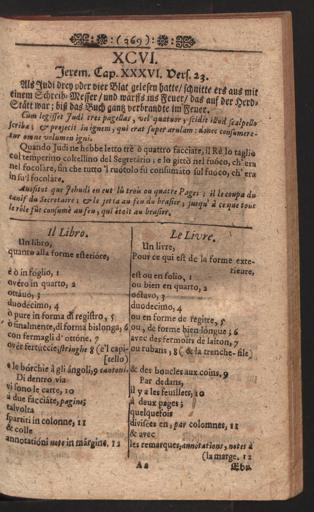 (369)
XCVI.
Jerem. Cap. XXXVI. Vers. 23.
Als Judi drey oder vier Blat gelesen hatte/ schnitte ers aus mit
einem Schreib-Messer/ und warffs ins Feuer/ das auf der Herd-
Stätt war; biß das Buch gantz verbrandte im Feuer.
Cum legisset Judi tres pagellas, vel quatuor, scidit illud scalpello
scribæ; & projecit in ignem, qui erat super arulam: donec consumere-
tur omne volumen igni.
Quando Judi ne hebbe letto trè ò quattro facciate, il Rè lo tagliò
col temperino coltellino del Segretario; e lo gittò nel fuoco, ch'era
nel focolare, fin che tutto 'l ruótolo fù consumato sul fuoco, ch'era
in su'l focolare.
Aussitost que Jehudi en eut lû trois ou quatre Pages; il le coupa du
canif du Secretaire; & le jetta au feu du brasier, jusqu'à ce que tout
le rôle fût consumé au feu, qui étoit au brasier.
Il Libro.
Un libro,
quanto alla forme esterióre,
è ò in foglio, 1
ovéro in quarto, 2
ottávo, 3
duodécimo, 4
ò pure in forma di registro, 5
ò finalmente, di forma bislonga, 6
con fermagli d'ottóne, 7
over fettúccie, stringhe 8 (è'l capi-
[tello)
e le bórchie à gli ángoli, 9 cantoni.
Di dentro via
vi sono le carte, 10
à due facciáte, pagine;
talvolta
spartiti in colonne, 11
& colle
annotatióni note in márgine. 12
Le Livre.
Un livre,
Pour ce qui est de la forme exte-
rieure,
est ou en folio, 1
ou bien en quarto, 2
octavo, 3
duodecimo, 4
ou en forme de regître, 5
ou, de forme bien longue; 6
avec des fermoirs de laiton, 7
ou rubans, 8 (& la trenche-file)
& des boucles aux coins, 9
Par dedans,
il y a les feuillets, 10
à deux pages;
quelquefois
divisées en, par colomnes, 11
& avec
les remarques, annotations, notes à
(la marge. 12
Aa